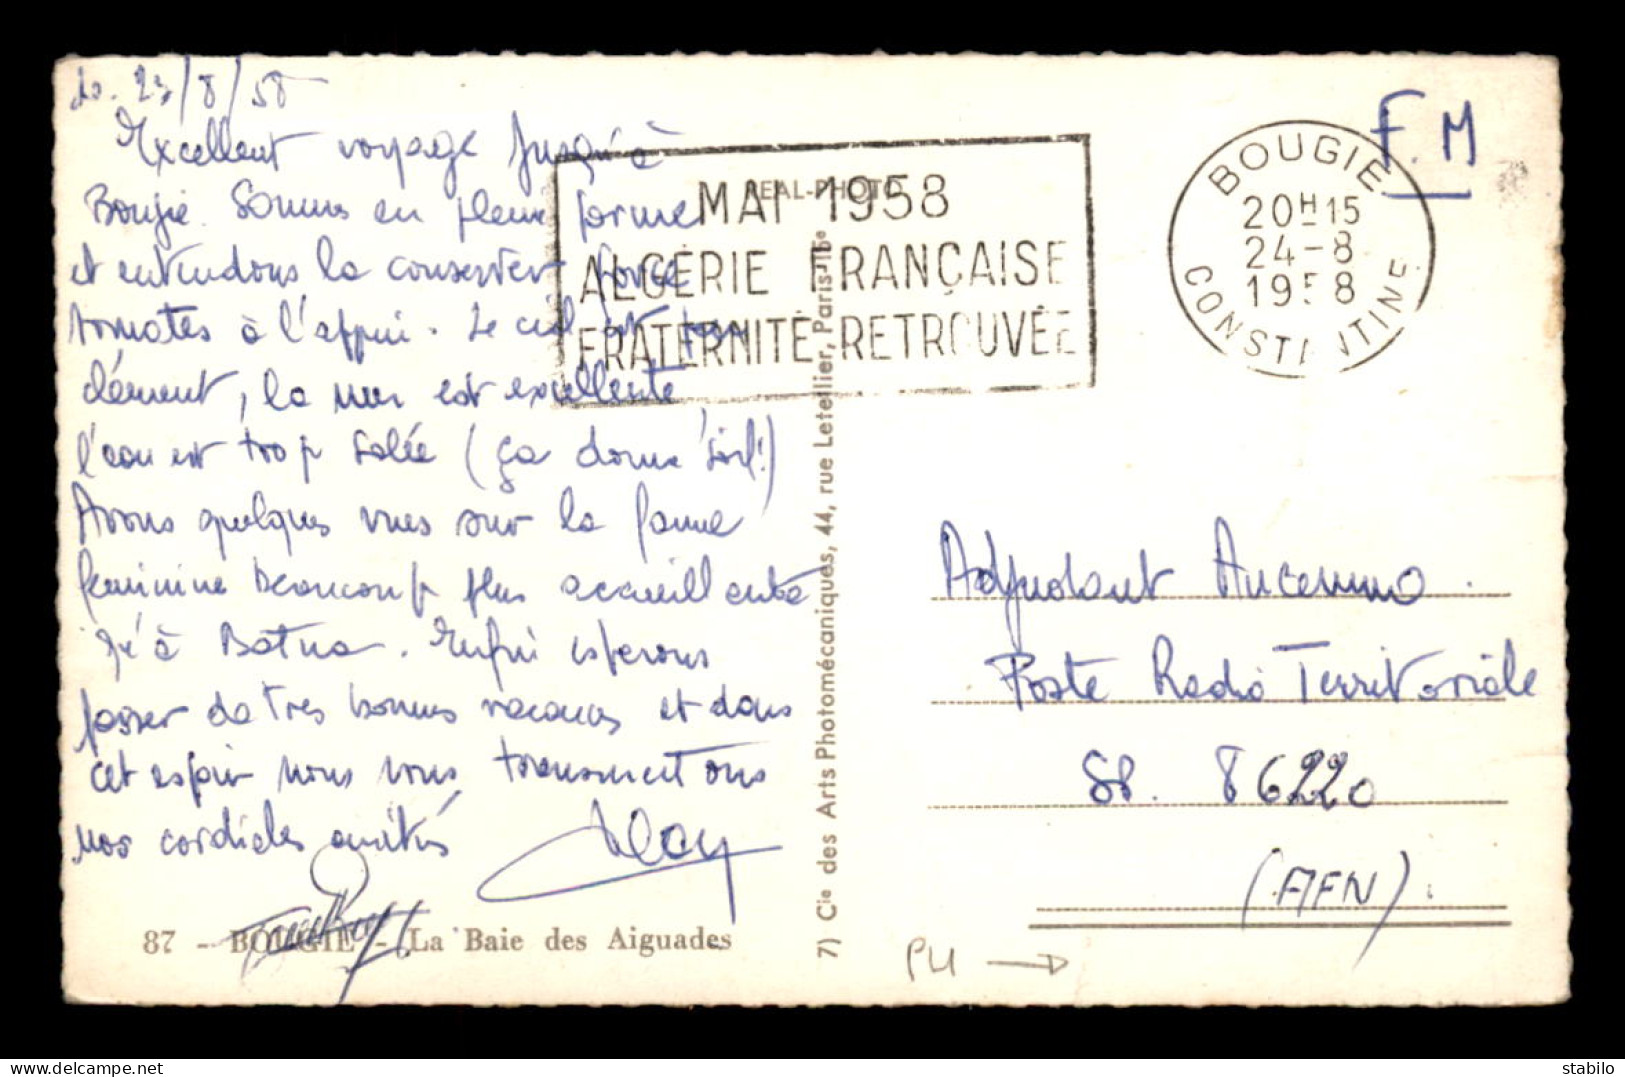 le. 23/8/58
Excellent voyage jusqu'à
Bougie. Sommes en pleine forme
et entendons la conserver force
tomates à l'appui. Le ciel est
dément, la mer est excellente
l'eau est trop salée (ça donne soif!)
Avons quelques vues sur la faune
féminine beaucoup plus accueillante
qu'à Batna. Enfin esperons
passer de très bonnes vacances et dans
cet espoir nous vous transmettons
nos cordiales amitiés
87 - BOUGIE - La Baie des Aiguades
REAL-PHOTO
7) Cie des Arts Photomécaniques, 44, rue Letellier, Paris-15e
MAI 1958
ALGÉRIE FRANÇAISE
FRATERNITÉ RETROUVÉE
BOUGIE
20H15
24-8
1958
CONSTANTINE
F.M
Adjudant
Poste Radio Territoriale
SP. 86220
(AFN).
PH →
delcampe.net
Tosibilo